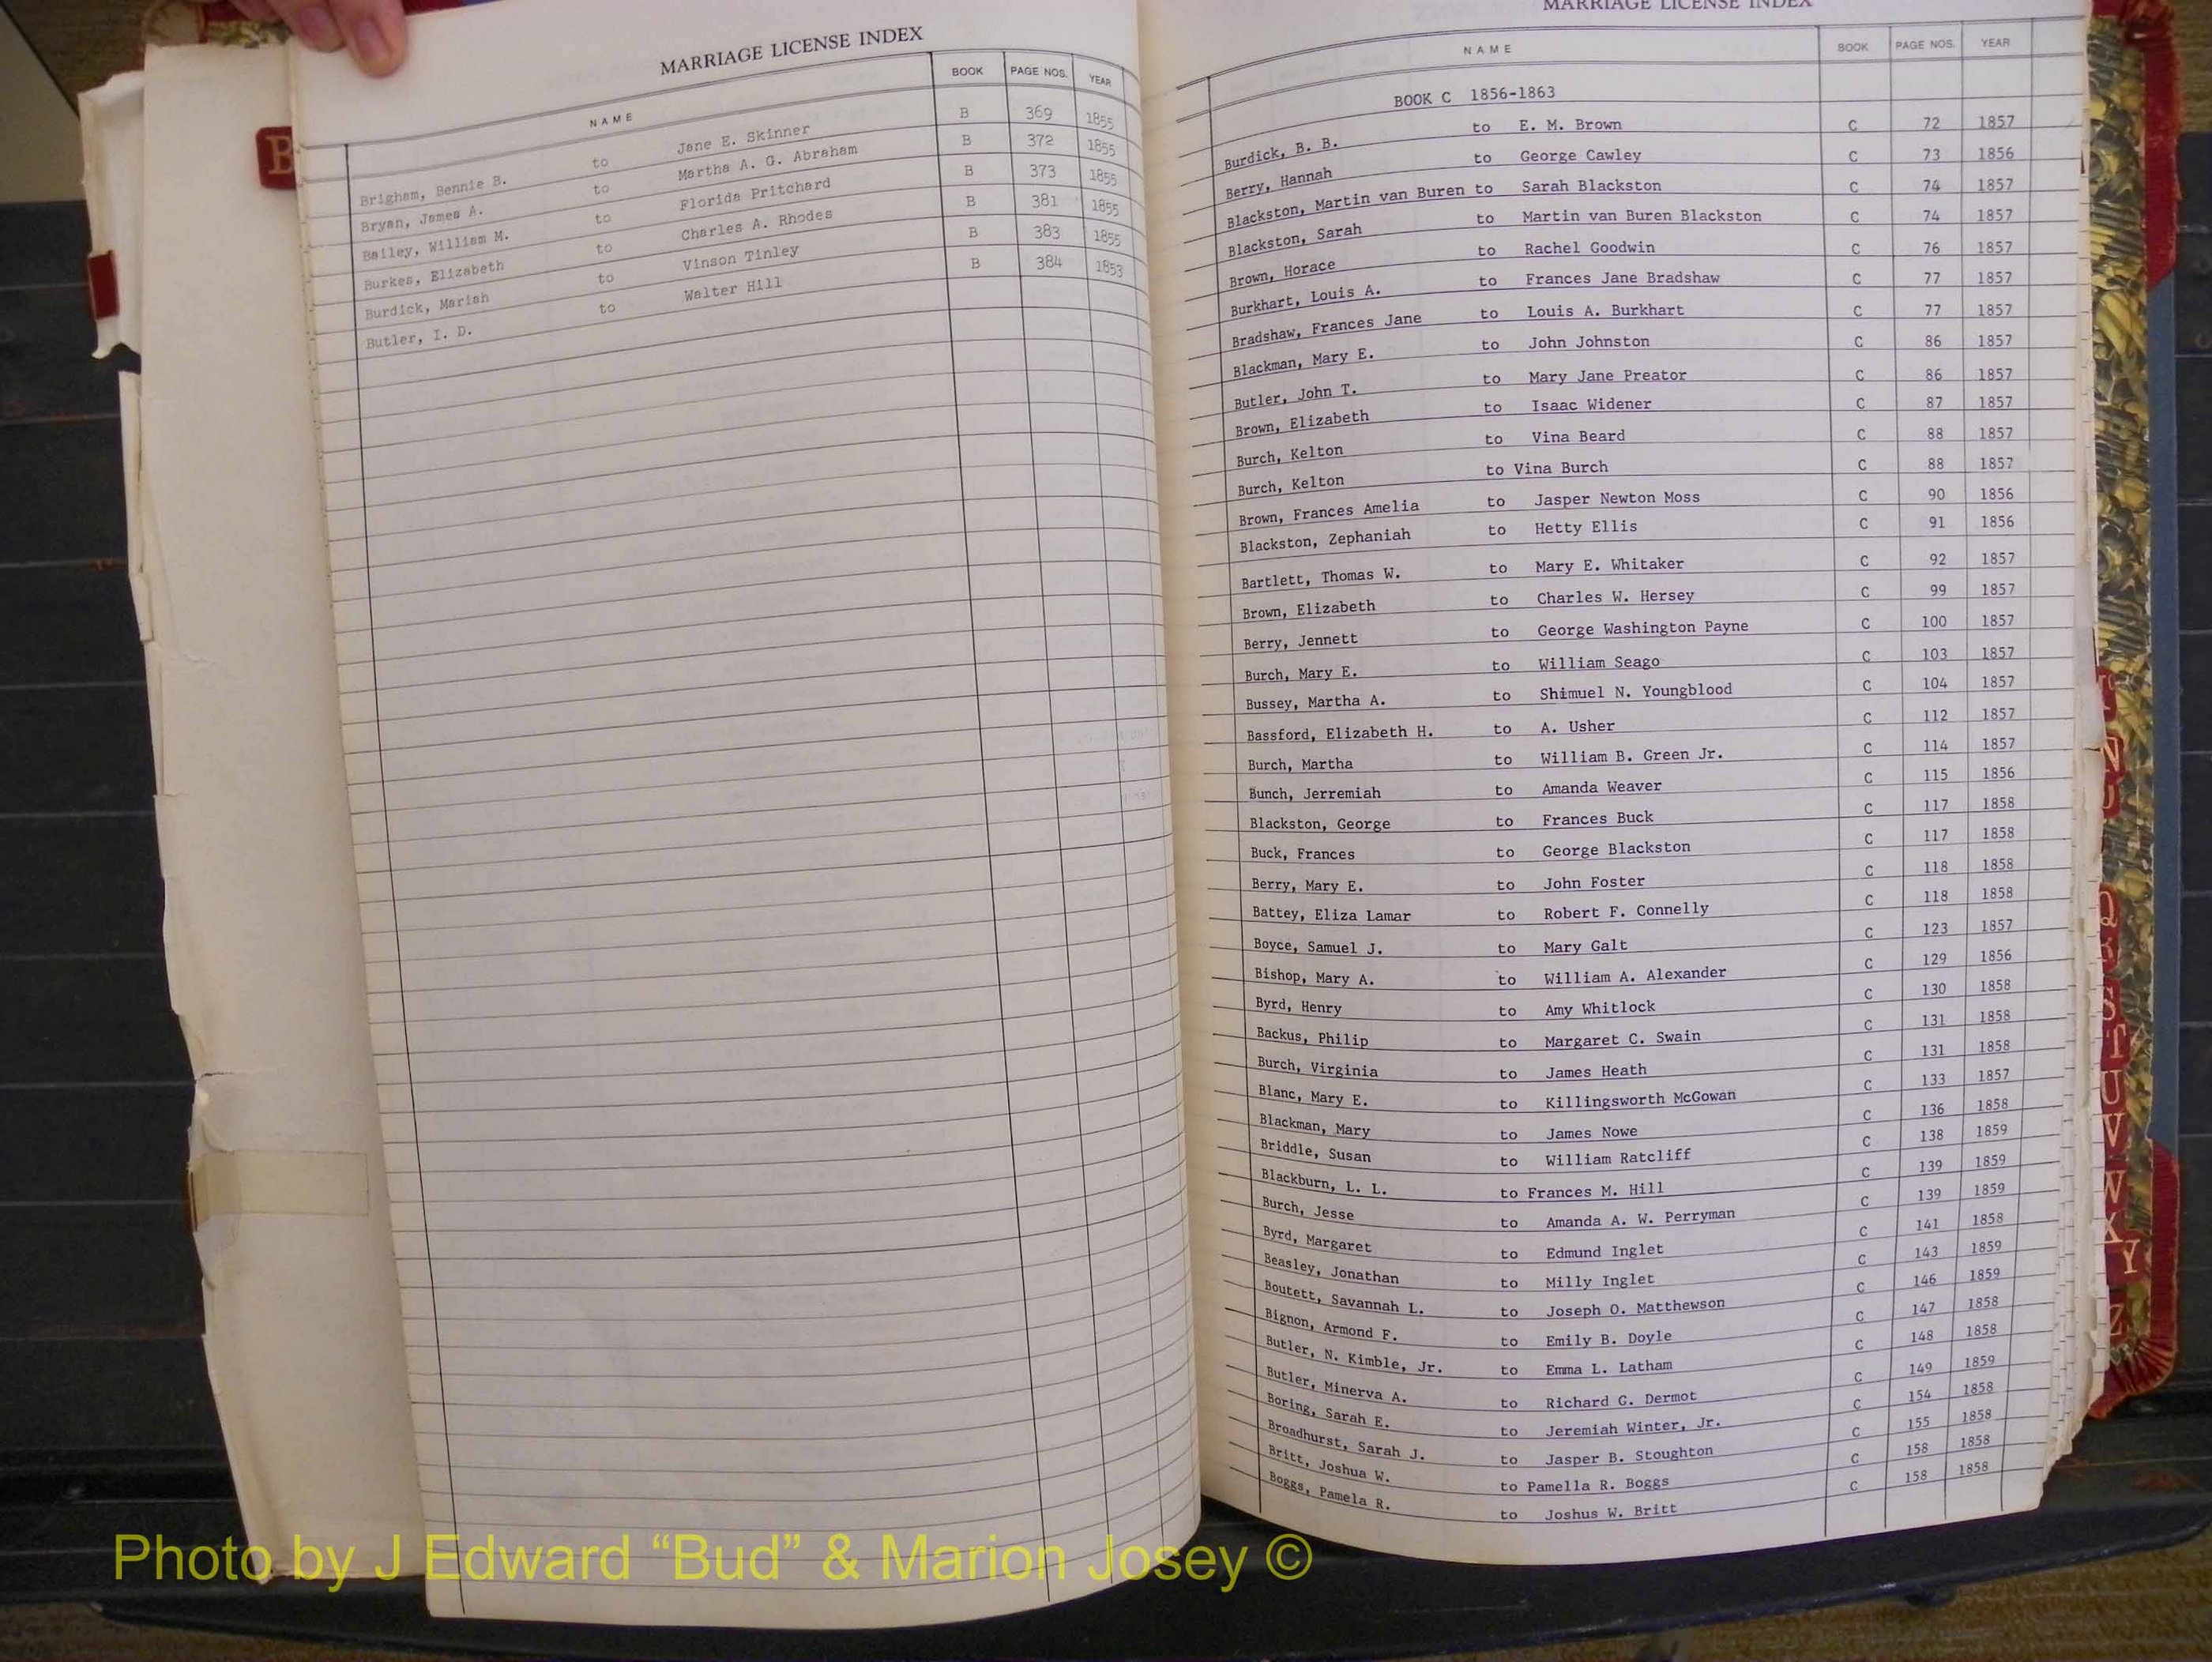 MARRIAGE LICENSE INDEX
NAME BOOK PAGE NOS. YEAR
Brigham, Bennie B. to Jane E. Skinner B 369 1855
Bryan, James A. to Martha A. G. Abraham B 372 1855
Bailey, William M. to Florida Pritchard B 373 1855
Burkes, Elizabeth to Charles A. Rhodes B 381 1855
Burdick, Mariah to Vinson Tinley B 383 1855
Butler, I. D. to Walter Hill B 384 1853
B
MARRIAGE LICENSE INDEX
NAME BOOK PAGE NOS. YEAR
BOOK C 1856-1863
Burdick, B. B. to E. M. Brown C 72 1857
Berry, Hannah to George Cawley C 73 1856
Blackston, Martin van Buren to Sarah Blackston C 74 1857
Blackston, Sarah to Martin van Buren Blackston C 74 1857
Brown, Horace to Rachel Goodwin C 76 1857
Burkhart, Louis A. to Frances Jane Bradshaw C 77 1857
Bradshaw, Frances Jane to Louis A. Burkhart C 77 1857
Blackman, Mary E. to John Johnston C 86 1857
Butler, John T. to Mary Jane Preator C 86 1857
Brown, Elizabeth to Isaac Widener C 87 1857
Burch, Kelton to Vina Beard C 88 1857
Burch, Kelton to Vina Burch C 88 1857
Brown, Frances Amelia to Jasper Newton Moss C 90 1856
Blackston, Zephaniah to Hetty Ellis C 91 1856
Bartlett, Thomas W. to Mary E. Whitaker C 92 1857
Brown, Elizabeth to Charles W. Hersey C 99 1857
Berry, Jennett to George Washington Payne C 100 1857
Burch, Mary E. to William Seago C 103 1857
Bussey, Martha A. to Shimuel N. Youngblood C 104 1857
Bassford, Elizabeth H. to A. Usher C 112 1857
Burch, Martha to William B. Green Jr. C 114 1857
Bunch, Jerremiah to Amanda Weaver C 115 1856
Blackston, George to Frances Buck C 117 1858
Buck, Frances to George Blackston C 117 1858
Berry, Mary E. to John Foster C 118 1858
Battey, Eliza Lamar to Robert F. Connelly C 118 1858
Boyce, Samuel J. to Mary Galt C 123 1857
Bishop, Mary A. to William A. Alexander C 129 1856
Byrd, Henry to Amy Whitlock C 130 1858
Backus, Philip to Margaret C. Swain C 131 1858
Burch, Virginia to James Heath C 131 1858
Blanc, Mary E. to Killingsworth McGowan C 133 1857
Blackman, Mary to James Nowe C 136 1858
Briddle, Susan to William Ratcliff C 138 1859
Blackburn, L. L. to Frances M. Hill C 139 1859
Burch, Jesse to Amanda A. W. Perryman C 139 1859
Byrd, Margaret to Edmund Inglet C 141 1858
Beasley, Jonathan to Milly Inglet C 143 1859
Boutett, Savannah L. to Joseph O. Matthewson C 146 1859
Bignon, Armond F. to Emily B. Doyle C 147 1858
Butler, N. Kimble, Jr. to Emma L. Latham C 148 1858
Butler, Minerva A. to Richard G. Dermot C 149 1859
Boring, Sarah E. to Jeremiah Winter, Jr. C 154 1858
Broadhurst, Sarah J. to Jasper B. Stoughton C 155 1858
Britt, Joshua W. to Pamella R. Boggs C 158 1858
Boggs, Pamela R. to Joshus W. Britt C 158 1858
N
Q
S
T
U
V
W
X
Y
Z
Photo by J Edward “Bud” & Marion Josey ©